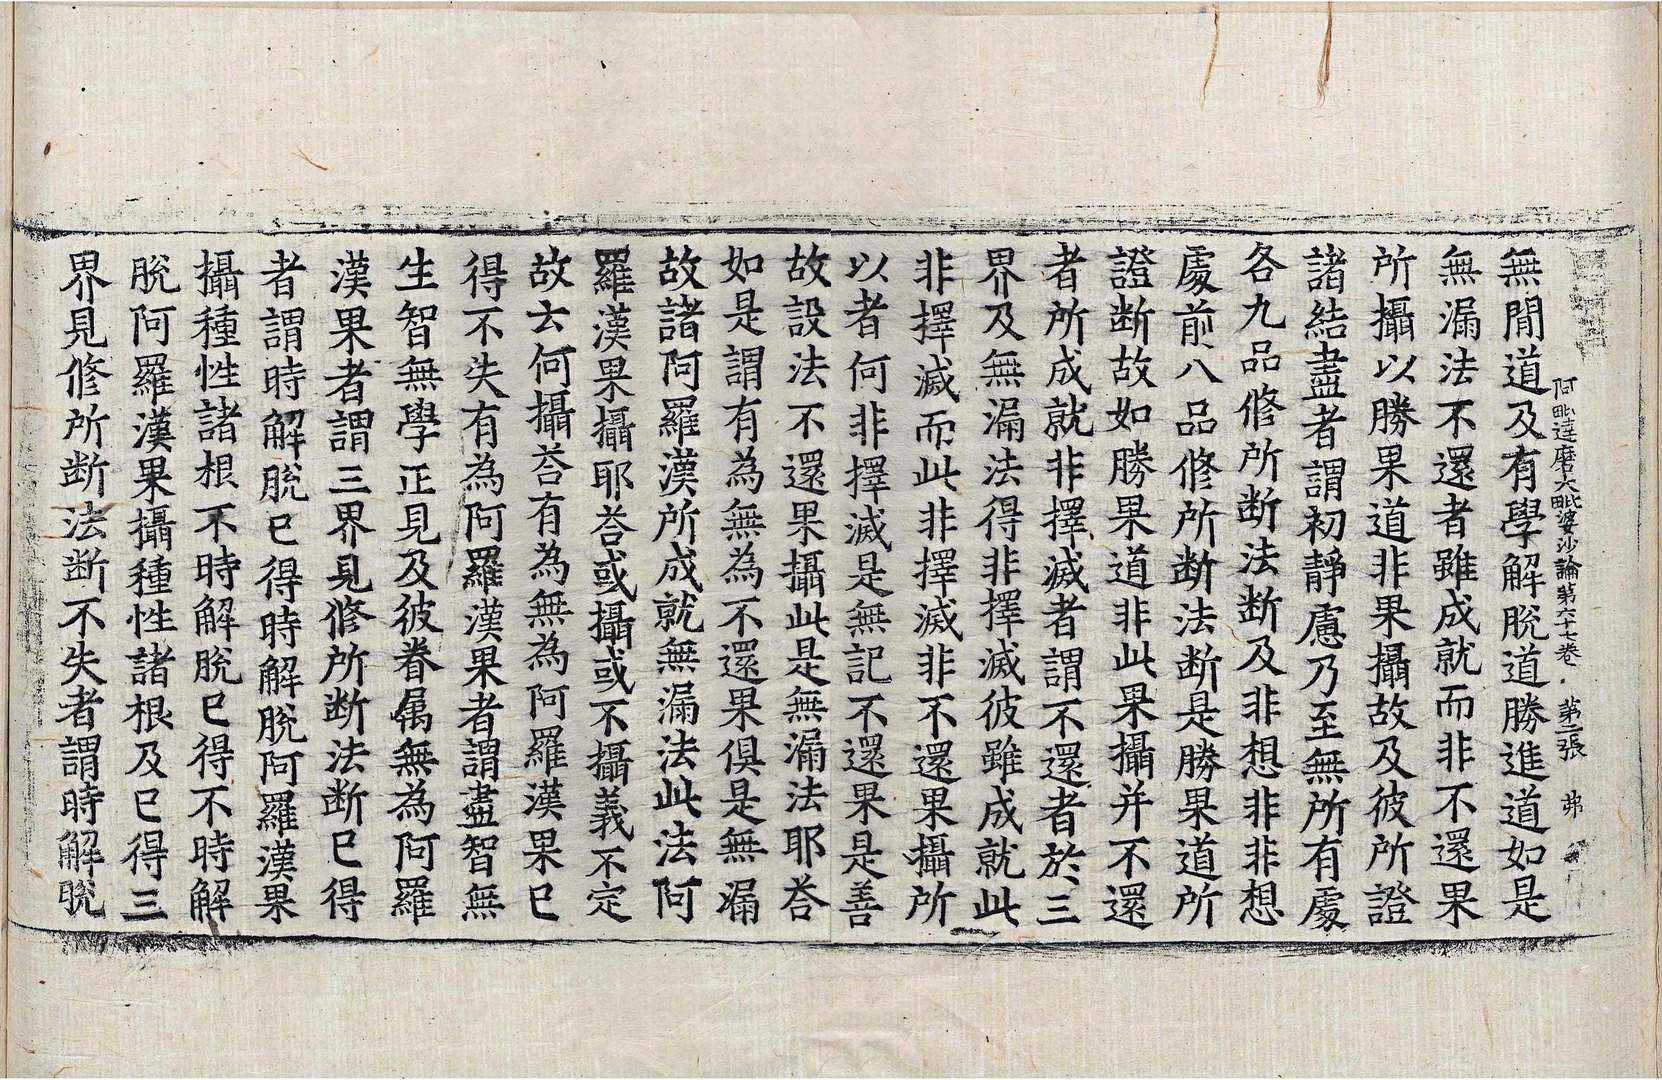 阿毗達磨大毗婆沙論第六十七卷 第二張 弟
無閒道及有學解脫道勝進道如是
無漏法不還者雖成就而非不還果
所攝以勝果道非果攝故及彼所證
諸結盡者謂初靜慮乃至無所有處
各九品修所断法断及非想非非想
處前八品修所断法断是勝果道所
證断故如勝果道非此果攝并不還
者所成就非擇滅者謂不還者於三
界及無漏法得非擇滅彼雖成就此
非擇滅而此非擇滅非不還果攝所
以者何非擇滅是無記不還果是善
故設法不還果攝此是無漏法耶荅
如是謂有為無為不還果俱是無漏
故諸阿羅漢所成就無漏法此法阿
羅漢果攝耶荅或攝或不攝義不定
故去何攝荅有為無為阿羅漢果已
得不失有為阿羅漢果者謂盡智無
生智無學正見及彼眷属無為阿羅
漢果者謂三界見修所断法断已得
者謂時解脫已得時解脫阿羅漢果
攝種性諸根不時解脫已得不時解
脫阿羅漢果攝種性諸根及已得三
界見修所断法断不失者謂時解脫